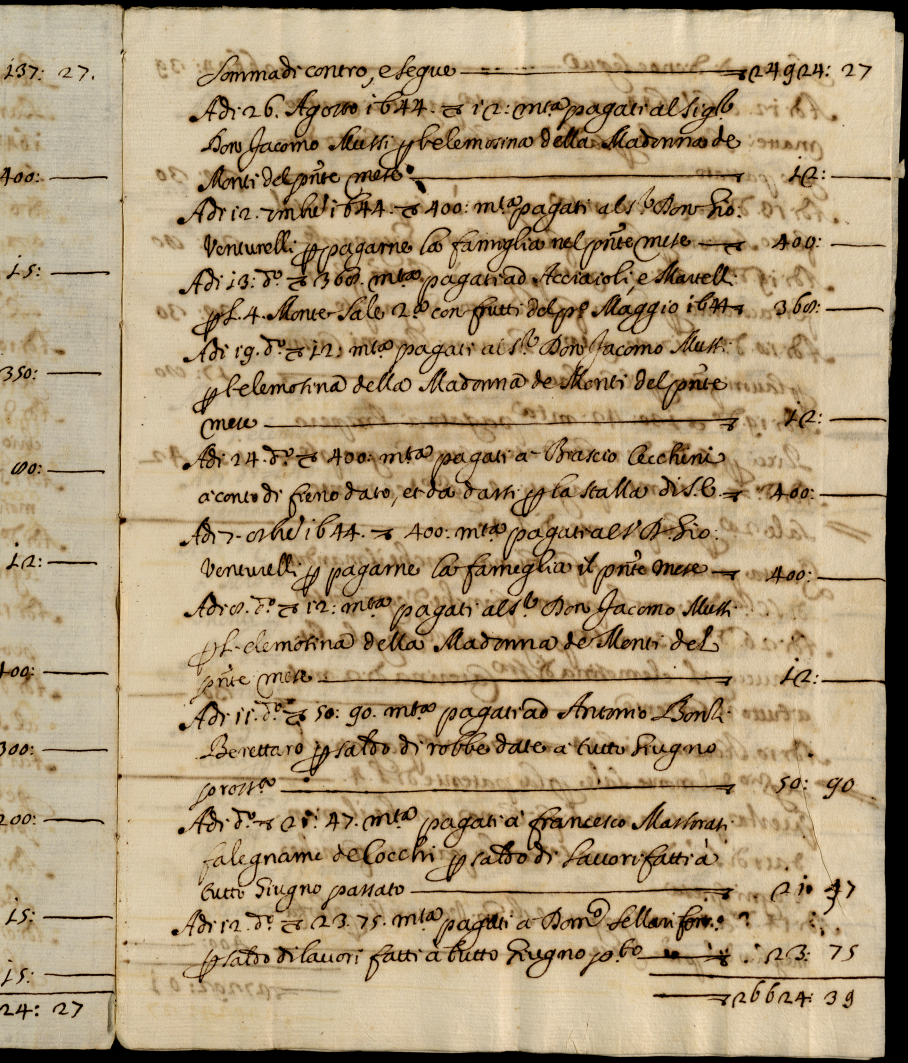 137: 27.
400:
15:
350:
80:
12:
400:
300:
200:
15:
15:
24: 27
Somma di contro, e segue 24924: 27
Adi 26. Agosto 1644. ▽ 12: mta pagati al sigr
Don Jacomo Mutti p l'elemosina della Madonna de
Monti del pnte mese 12:
Adi 12. 7mbre 1644. ▽ 400: mta pagati al sr Don Gio:
Venturelli p pagarne la famiglia nel pnte mese 400:
Adi 13. do ▽ 368. mta pagati ad Acciaioli e Martelli
p L. 4. Monte Sale 2o con frutti del po Maggio 1644 368:
Adi 19. do ▽ 12: mta pagati al sr Don Jacomo Mutti
p l'elemosina della Madonna de Monti del pnte
mese 12:
Adi 24. do ▽ 400: mta pagati a Brascio Cecchini
a conto di fieno dato, et da darsi p la stalla di S.E. 400:
Adi 7. 8bre 1644. ▽ 400: mta pagati al sr D. Gio:
Venturelli p pagarne la fameglia il pnte mese 400:
Adi 8. do ▽ 12: mta pagati al sr Don Jacomo Mutti
p L'elemosina della Madonna de Monti del
pnte mese 12:
Adi 11. do ▽ 50: 90. mta pagati ad Antonio
Berettaro p saldo di robbe date a tutto Giugno
prosso 50: 90
Adi do ▽ 21: 47. mta pagati a francesco
falegname de Cocchi p saldo di Lavori fatti à
tutto Giugno passato 21 47
Adi 12. do ▽ 23. 75. mta pagati a Domco Sellari
p saldo di lavori fatti à tutto Giugno po 23: 75
26624: 39